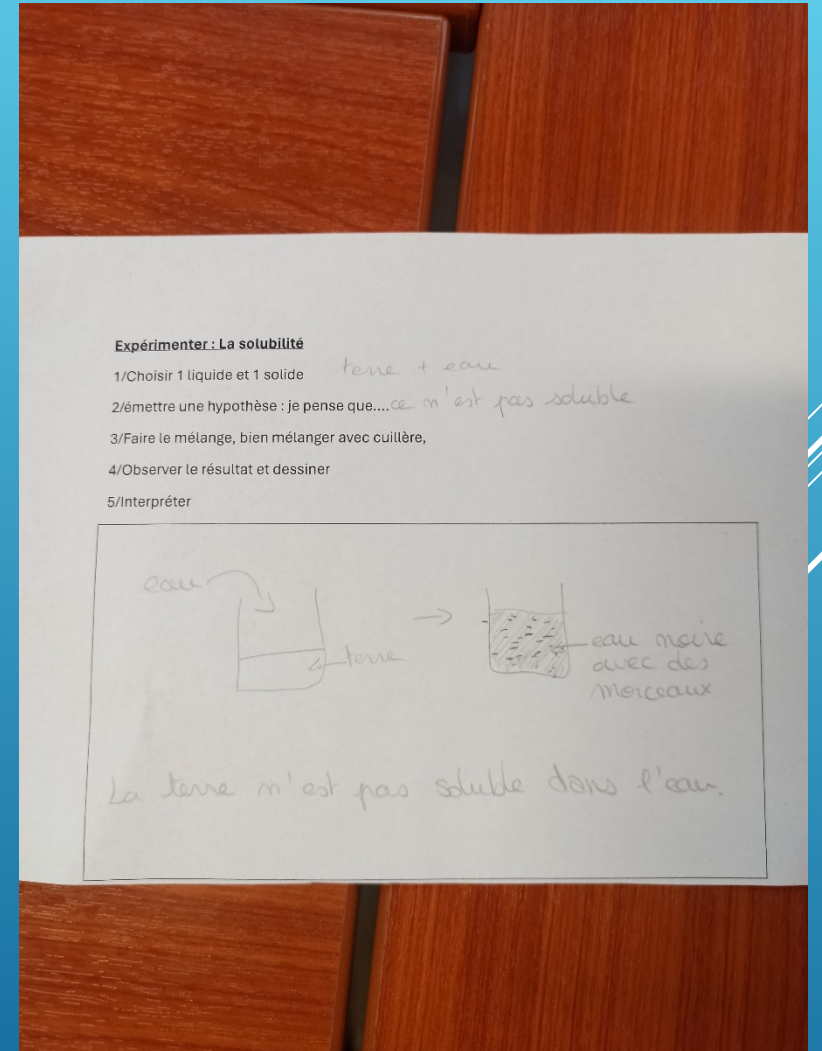 Expérimenter : La solubilité
1/Choisir 1 liquide et 1 solide terre + eau
2/émettre une hypothèse : je pense que....ce n'est pas soluble
3/Faire le mélange, bien mélanger avec cuillère,
4/Observer le résultat et dessiner
5/Interpréter
eau
terre
eau noire
avec des
morceaux
La terre n'est pas soluble dans l'eau.